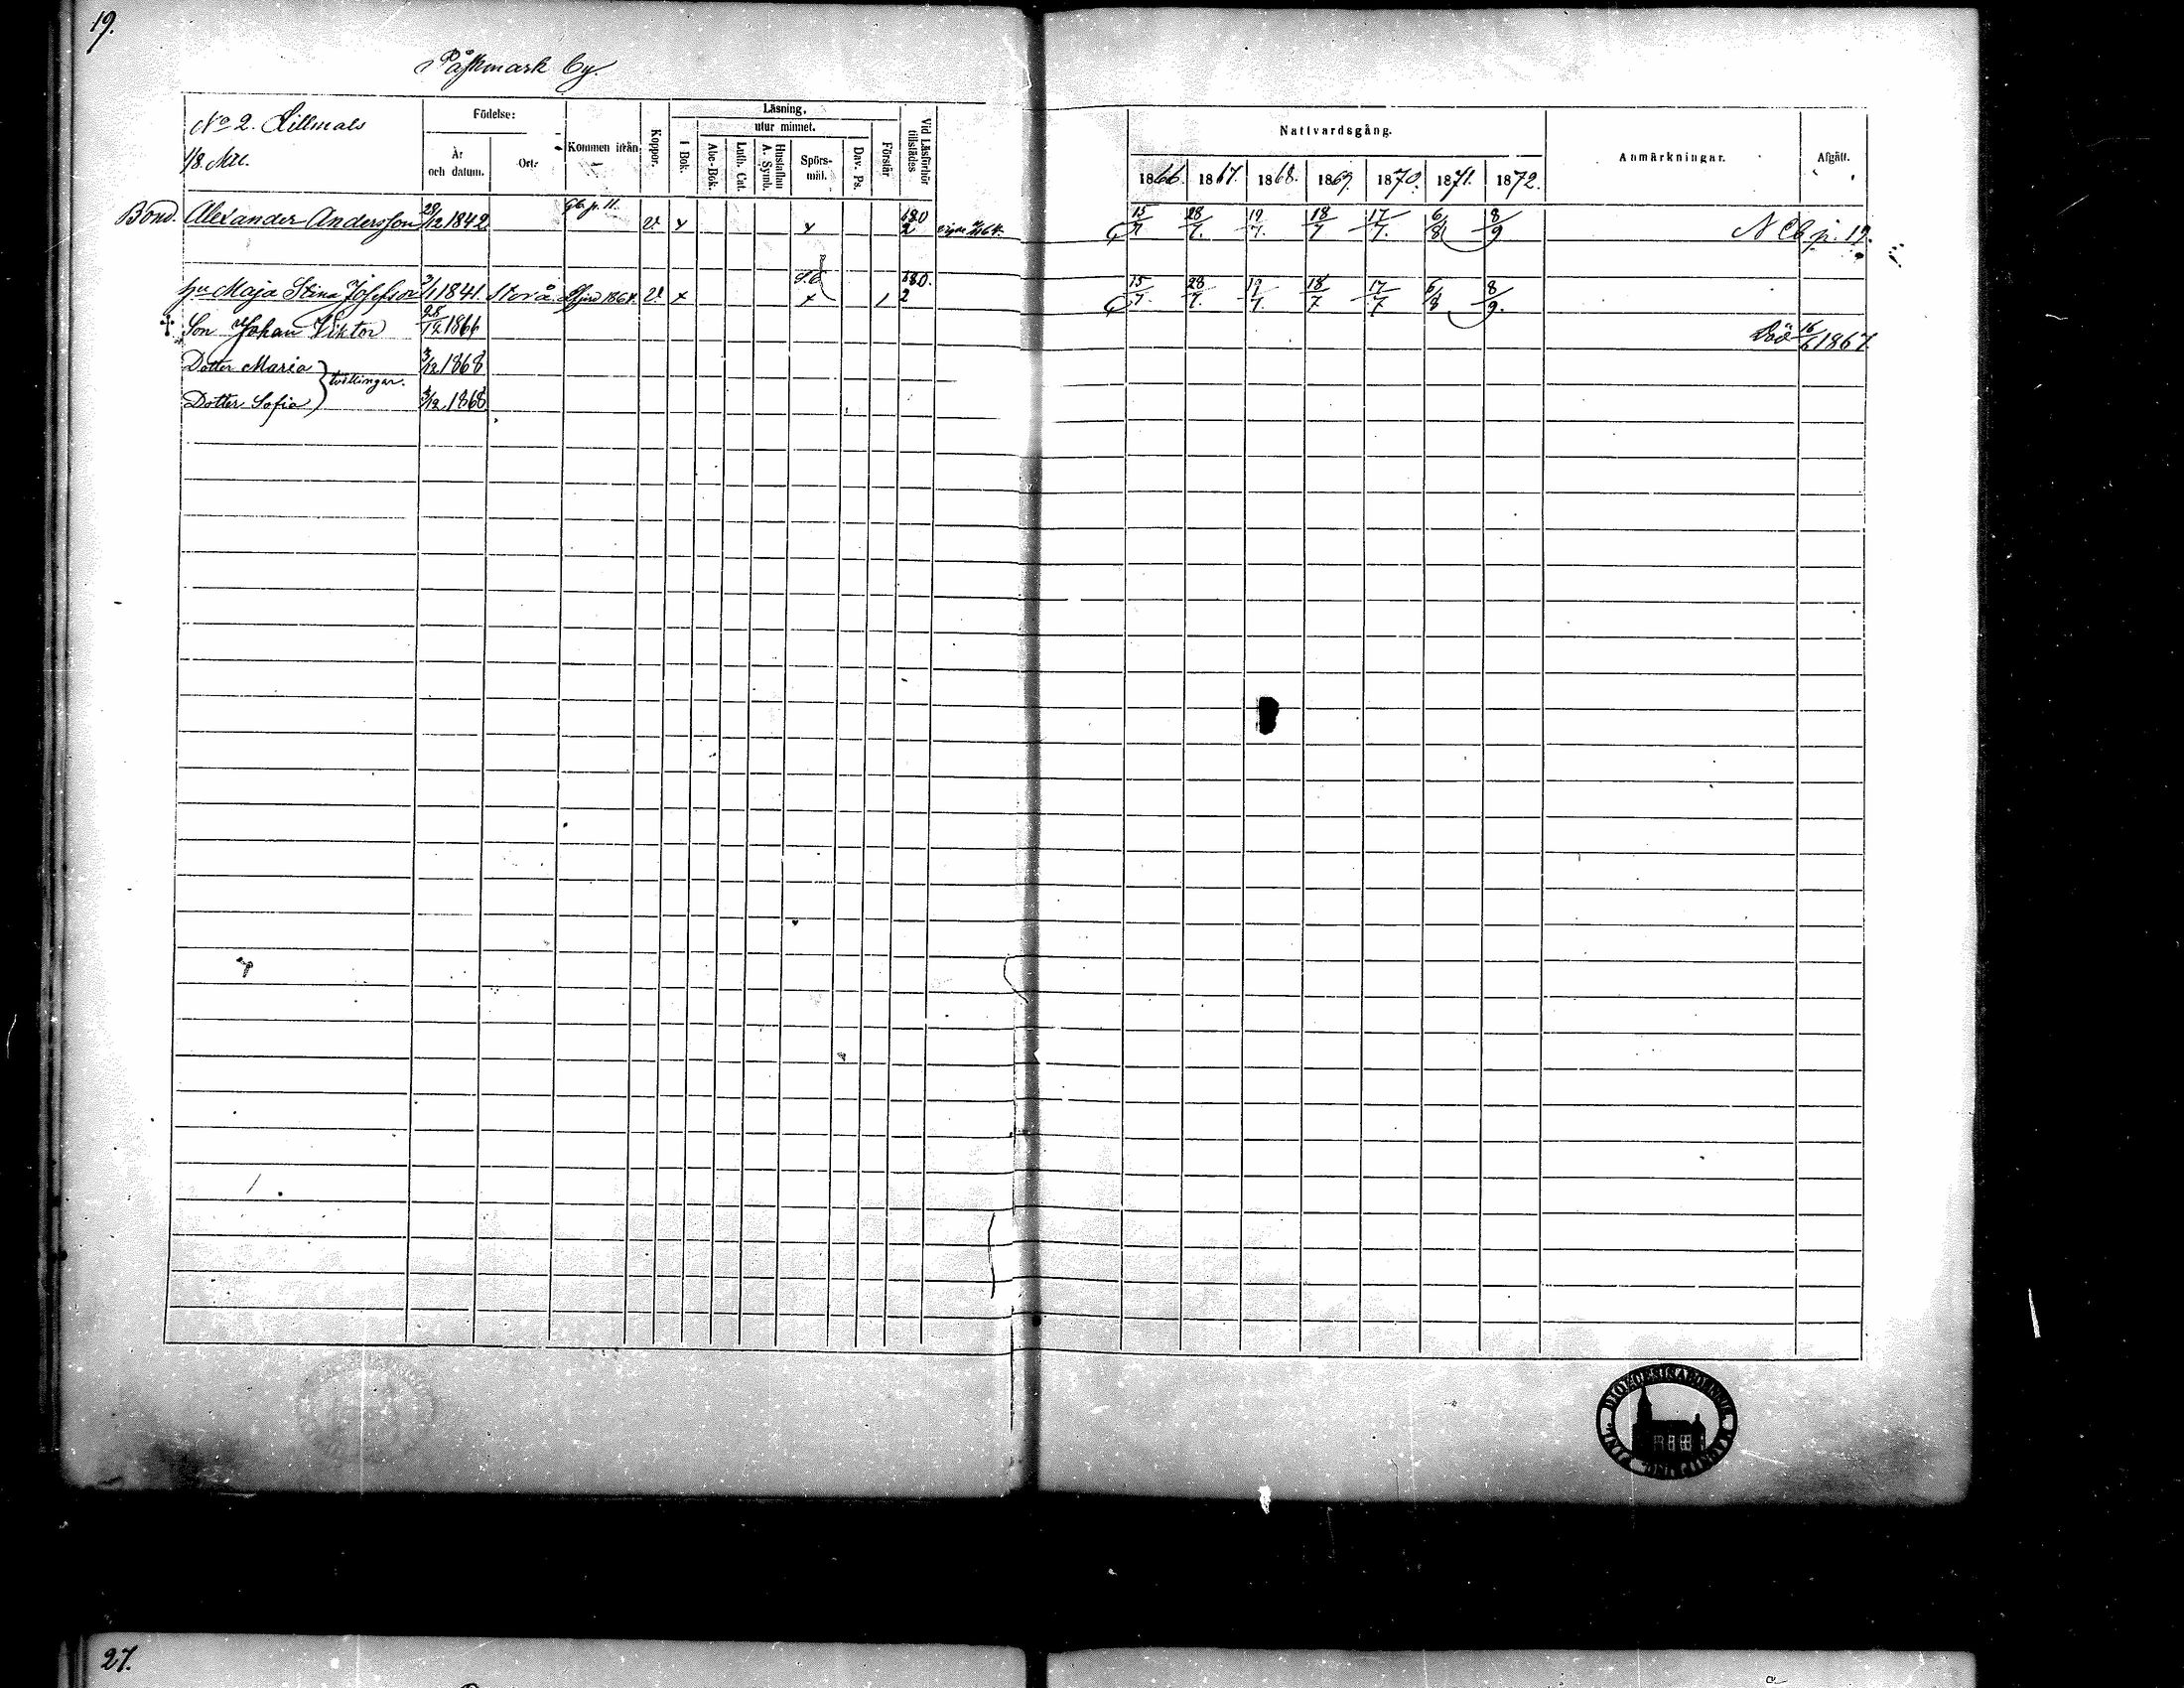 19.
Påskmark by.
No 2. Lillmals
1/8 Mtl.
Födelse:
År och datum.
Ort.
Kommen ifrån
Koppor.
Läsning,
I Bok.
utur minnet.
Abc-Bok.
Luth. Cat.
Hustaflan A. Symb.
Spörs-mål.
Dav. Ps.
Förstår
Vid Läsförhör tillstädes
Nattvardsgång.
1866. 1867. 1868. 1869. 1870. 1871. 1872.
Anmärkningar.
Afgått.
Bond. Alexander Andersson 29/12 1842 Gb. p. 11. v. x x 15/7 28/7. 19/7. 18/7 17/7. 6/8 8/9 N Cb p. 19.
hu Maja Stina Josefsdr 3/1 1841 1864. v. x x 1 15/7. 28/7. 19/7. 18/7 17/7 6/8 8/9.
Son Johan Viktor 28/12 1866 Död 16/6 1867.
Dotter Maria 3/12 1868
tvillingar.
Dotter Sofia 3/12 1868
27.